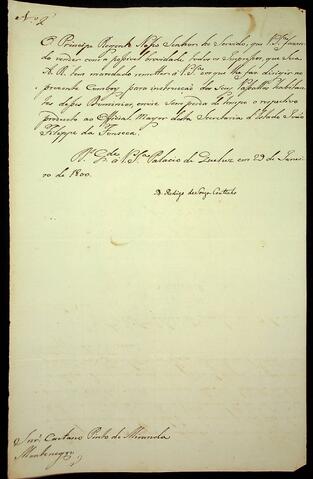 N.o 2
O Principe Regente Nosso Senhor he Servido, que V. S.ª fazendo
vender com a possivel brevidade todos os Impressos, que Sua
A. R. tem mandado remetter a V. S.ª e os que ha de dirigir no
presente Comboy para instrucção dos Seus Vassallos habitan
tes desses Dominios, envie sem perda de tempo o respectivo
producto ao Official Maior desta Secretaria d'Estado João
Filippe da Fonseca.
D.s G.de a V. S.ª Palacio de Queluz em 29 de Janei
ro de 1800.
D. Rodrigo de Souza Coutinho
Snr. Caetano Pinto de Miranda
Montenegro